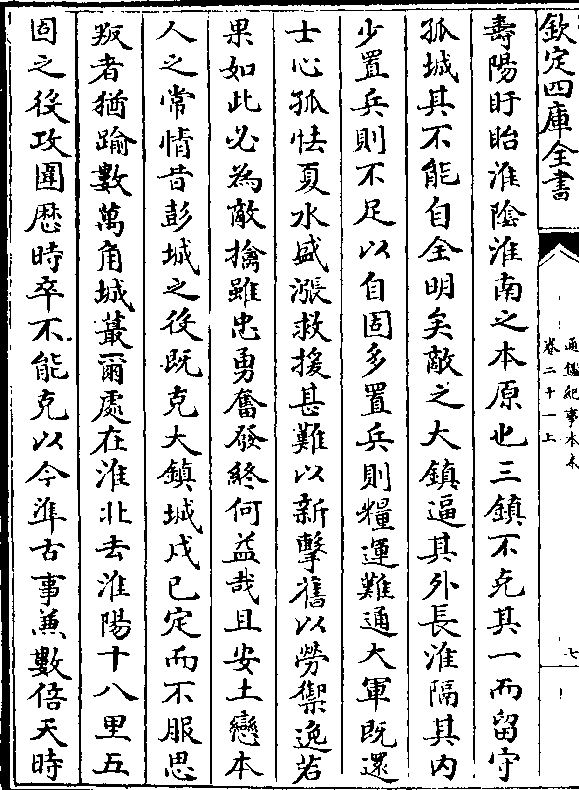 欽定四庫全書
通鑑紀事本末
卷二十一上
七
壽陽盱眙淮陰淮南之本原也三鎮不克其一而留守
孤城其不能自全明矣敵之大鎮逼其外長淮隔其内
少置兵則不足以自固多置兵則糧運難通大軍既還
士心孤怯夏水盛漲救援甚難以新擊舊以勞禦逸若
果如此必為敵擒雖忠勇奮發終何益哉且安土戀本
人之常情昔彭城之役既克大鎮城戍已定而不服思
叛者猶踰數萬角城蕞爾處在淮北去淮陽十八里五
固之役攻圍歴時卒不能克以今凖古事兼數倍天時